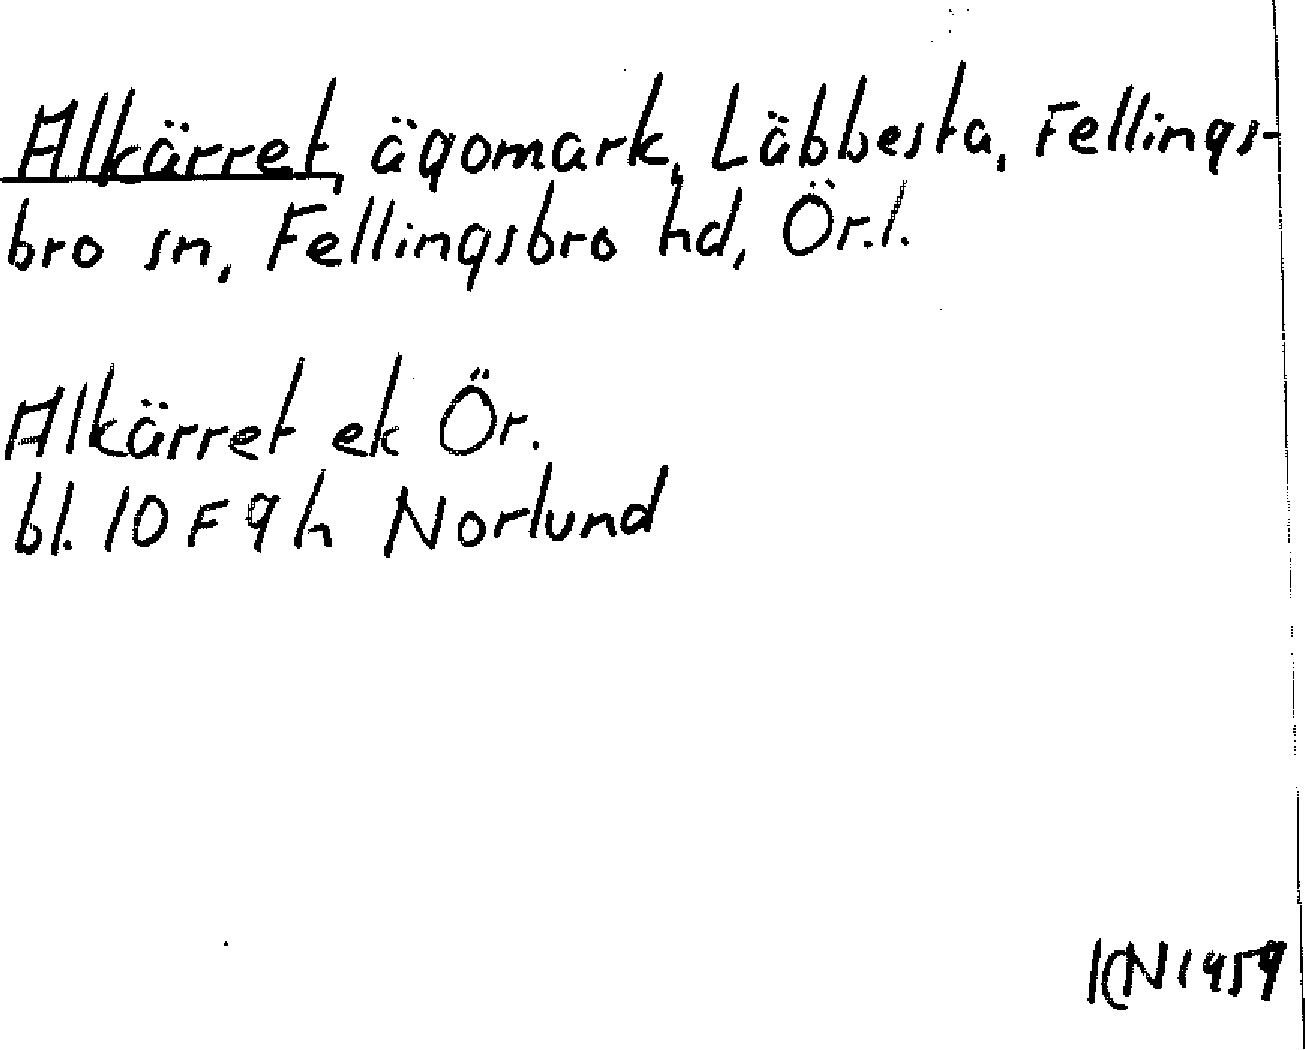 Alkärret, ägomark, Läbbesta, Fellings-
bro sn, Fellingsbro hd, Ör.l.
Alkärret ek Ör.
bl. 10 F 9 h Norlund
KN 1959